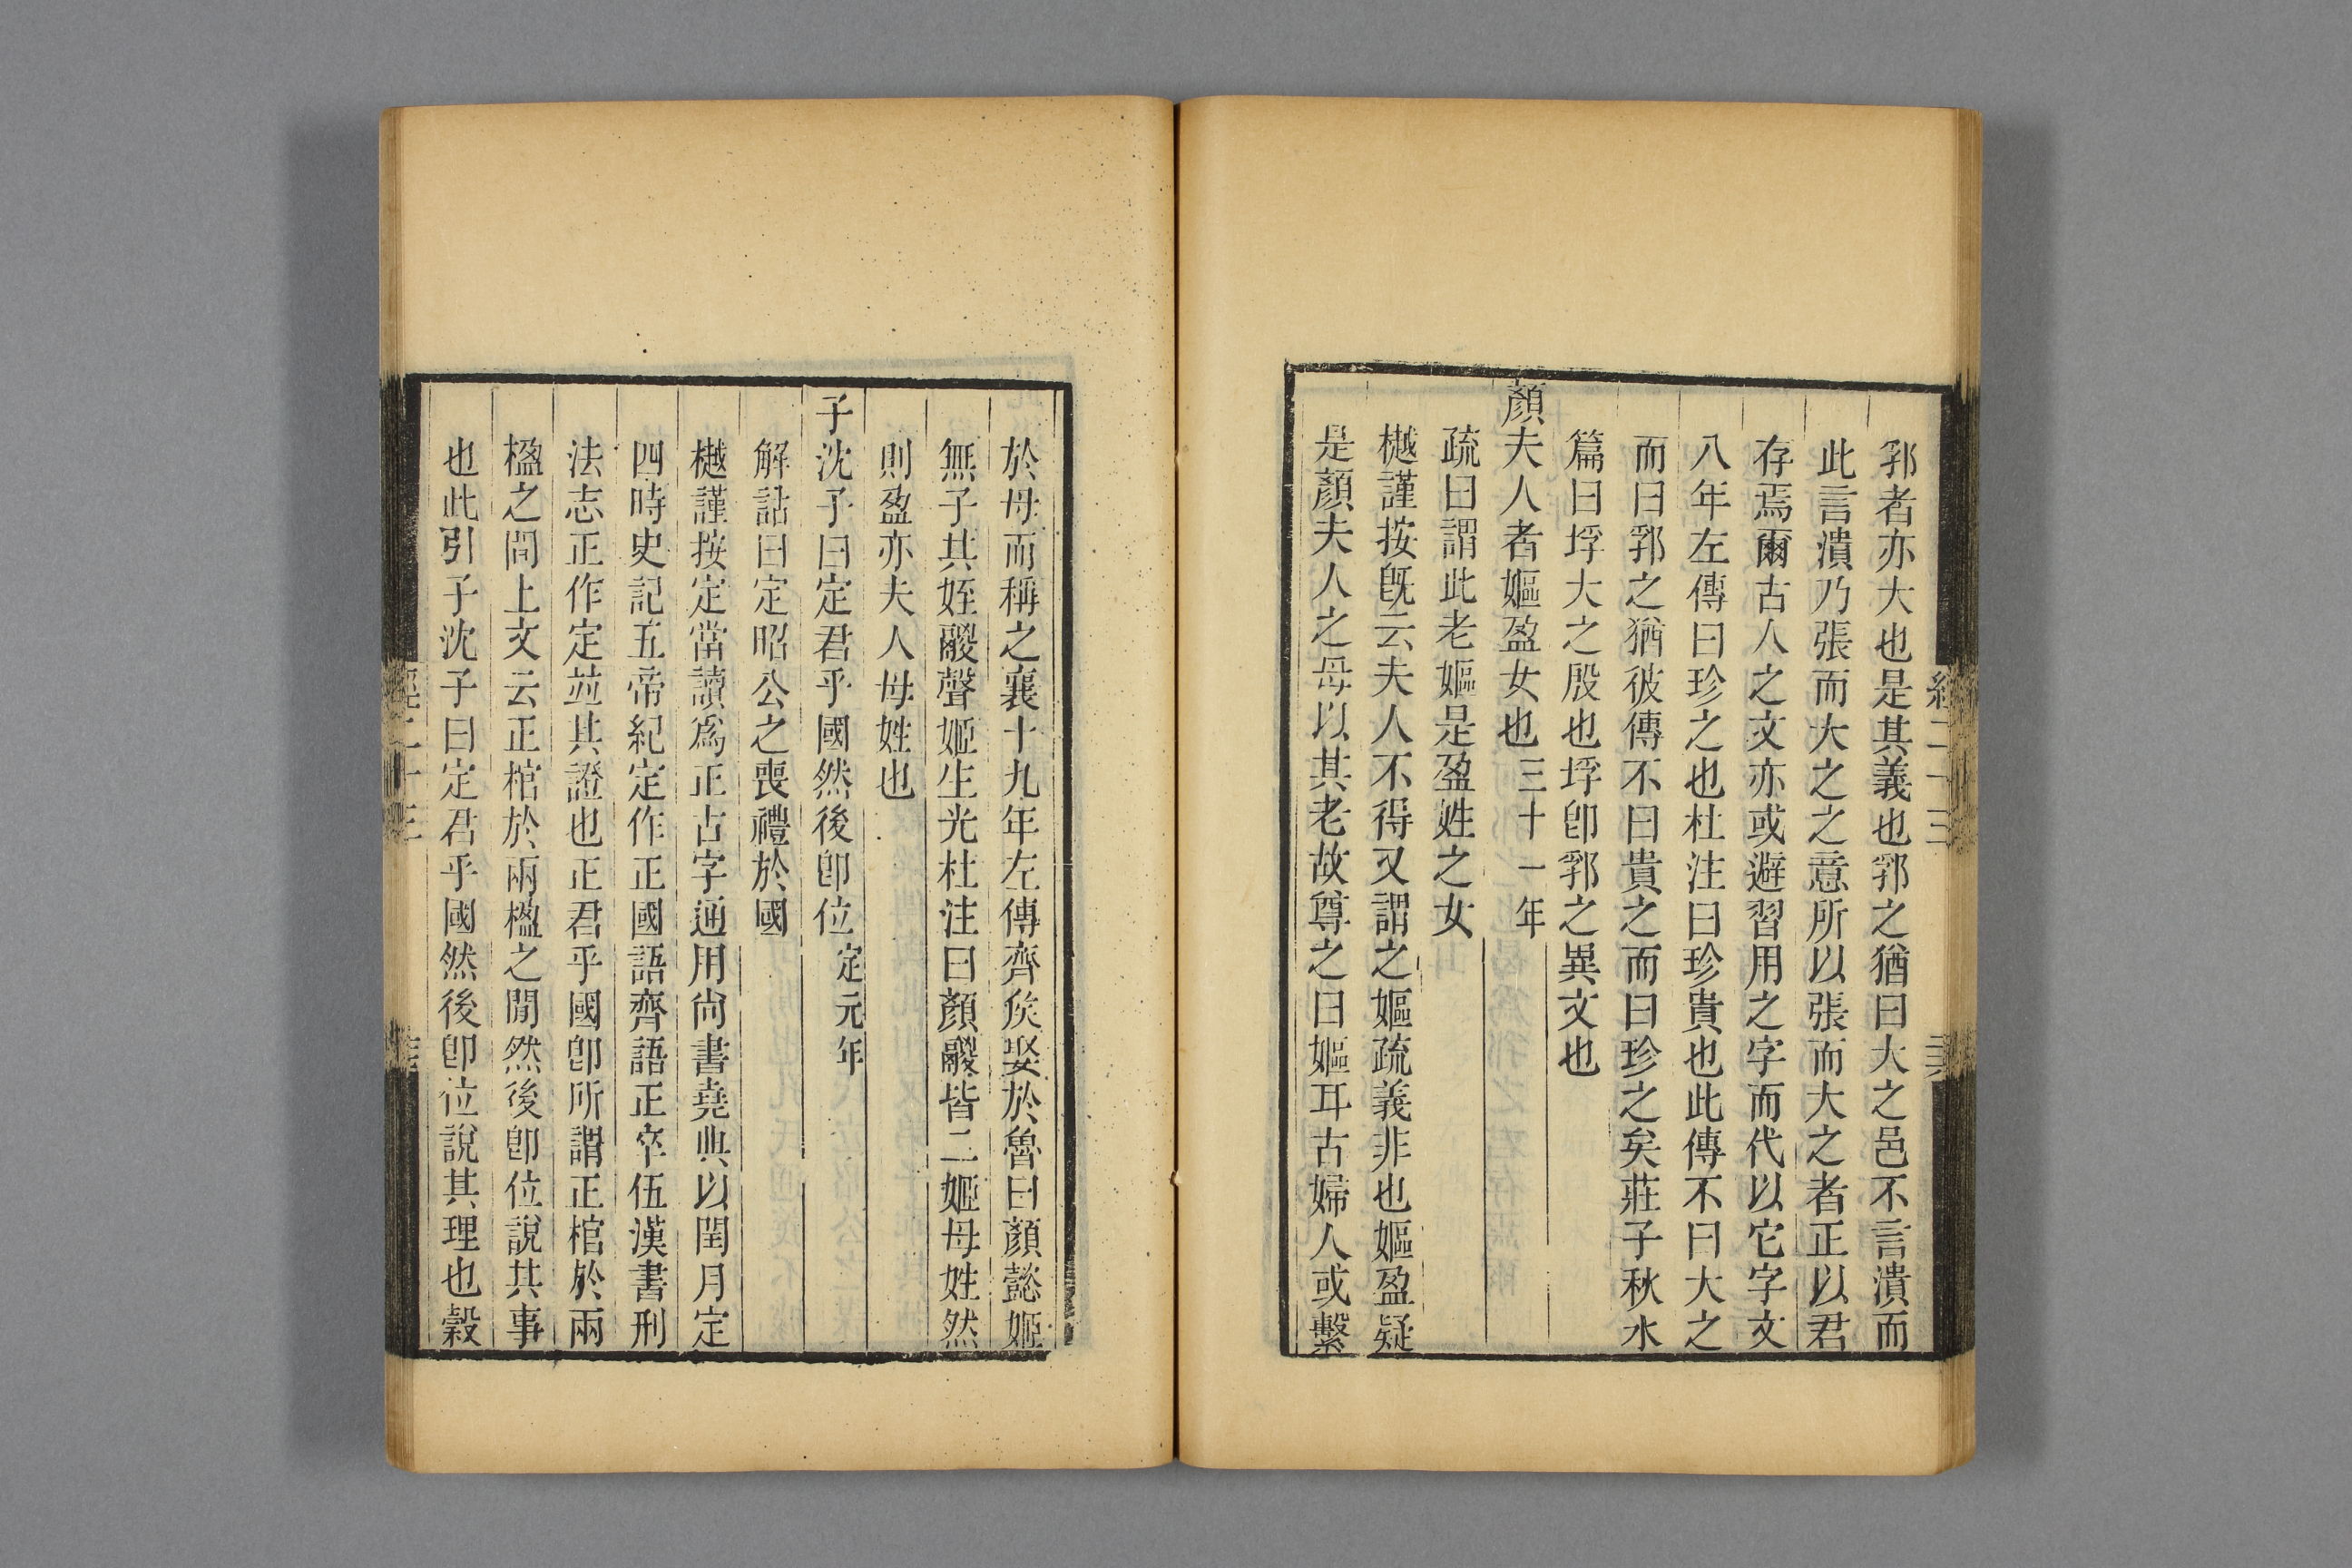 郛者亦大也是其義也郛之猶曰大之邑不言潰而
此言潰乃張而大之之意所以張而大之者正以君
存焉爾古人之文亦或避習用之字而代以它字文
八年左傳曰珍之也杜注曰珍貴也此傳不曰大之
而曰郛之猶彼傳不曰貴之而曰珍之矣莊子秋水
篇曰垺大之殷也垺卽郛之異文也
顏夫人者嫗盈女也三十一年
疏曰謂此老嫗是盈姓之女
樾謹按旣云夫人不得又謂之嫗疏義非也嫗盈疑
是顏夫人之母以其老故尊之曰嫗耳古婦人或繫
於母而稱之襄十九年左傳齊矦娶於魯曰顏懿姬
無子其姪鬷聲姬生光杜注曰顏鬷皆二姬母姓然
則盈亦夫人母姓也
子沈子曰定君乎國然後卽位定元年
解詁曰定昭公之喪禮於國
樾謹按定當讀爲正古字通用尙書堯典以閏月定
四時史記五帝紀定作正國語齊語正卒伍漢書刑
法志正作定竝其證也正君乎國卽所謂正棺於兩
楹之閒上文云正棺於兩楹之閒然後卽位說其事
也此引子沈子曰定君乎國然後卽位說其理也穀
經二十三